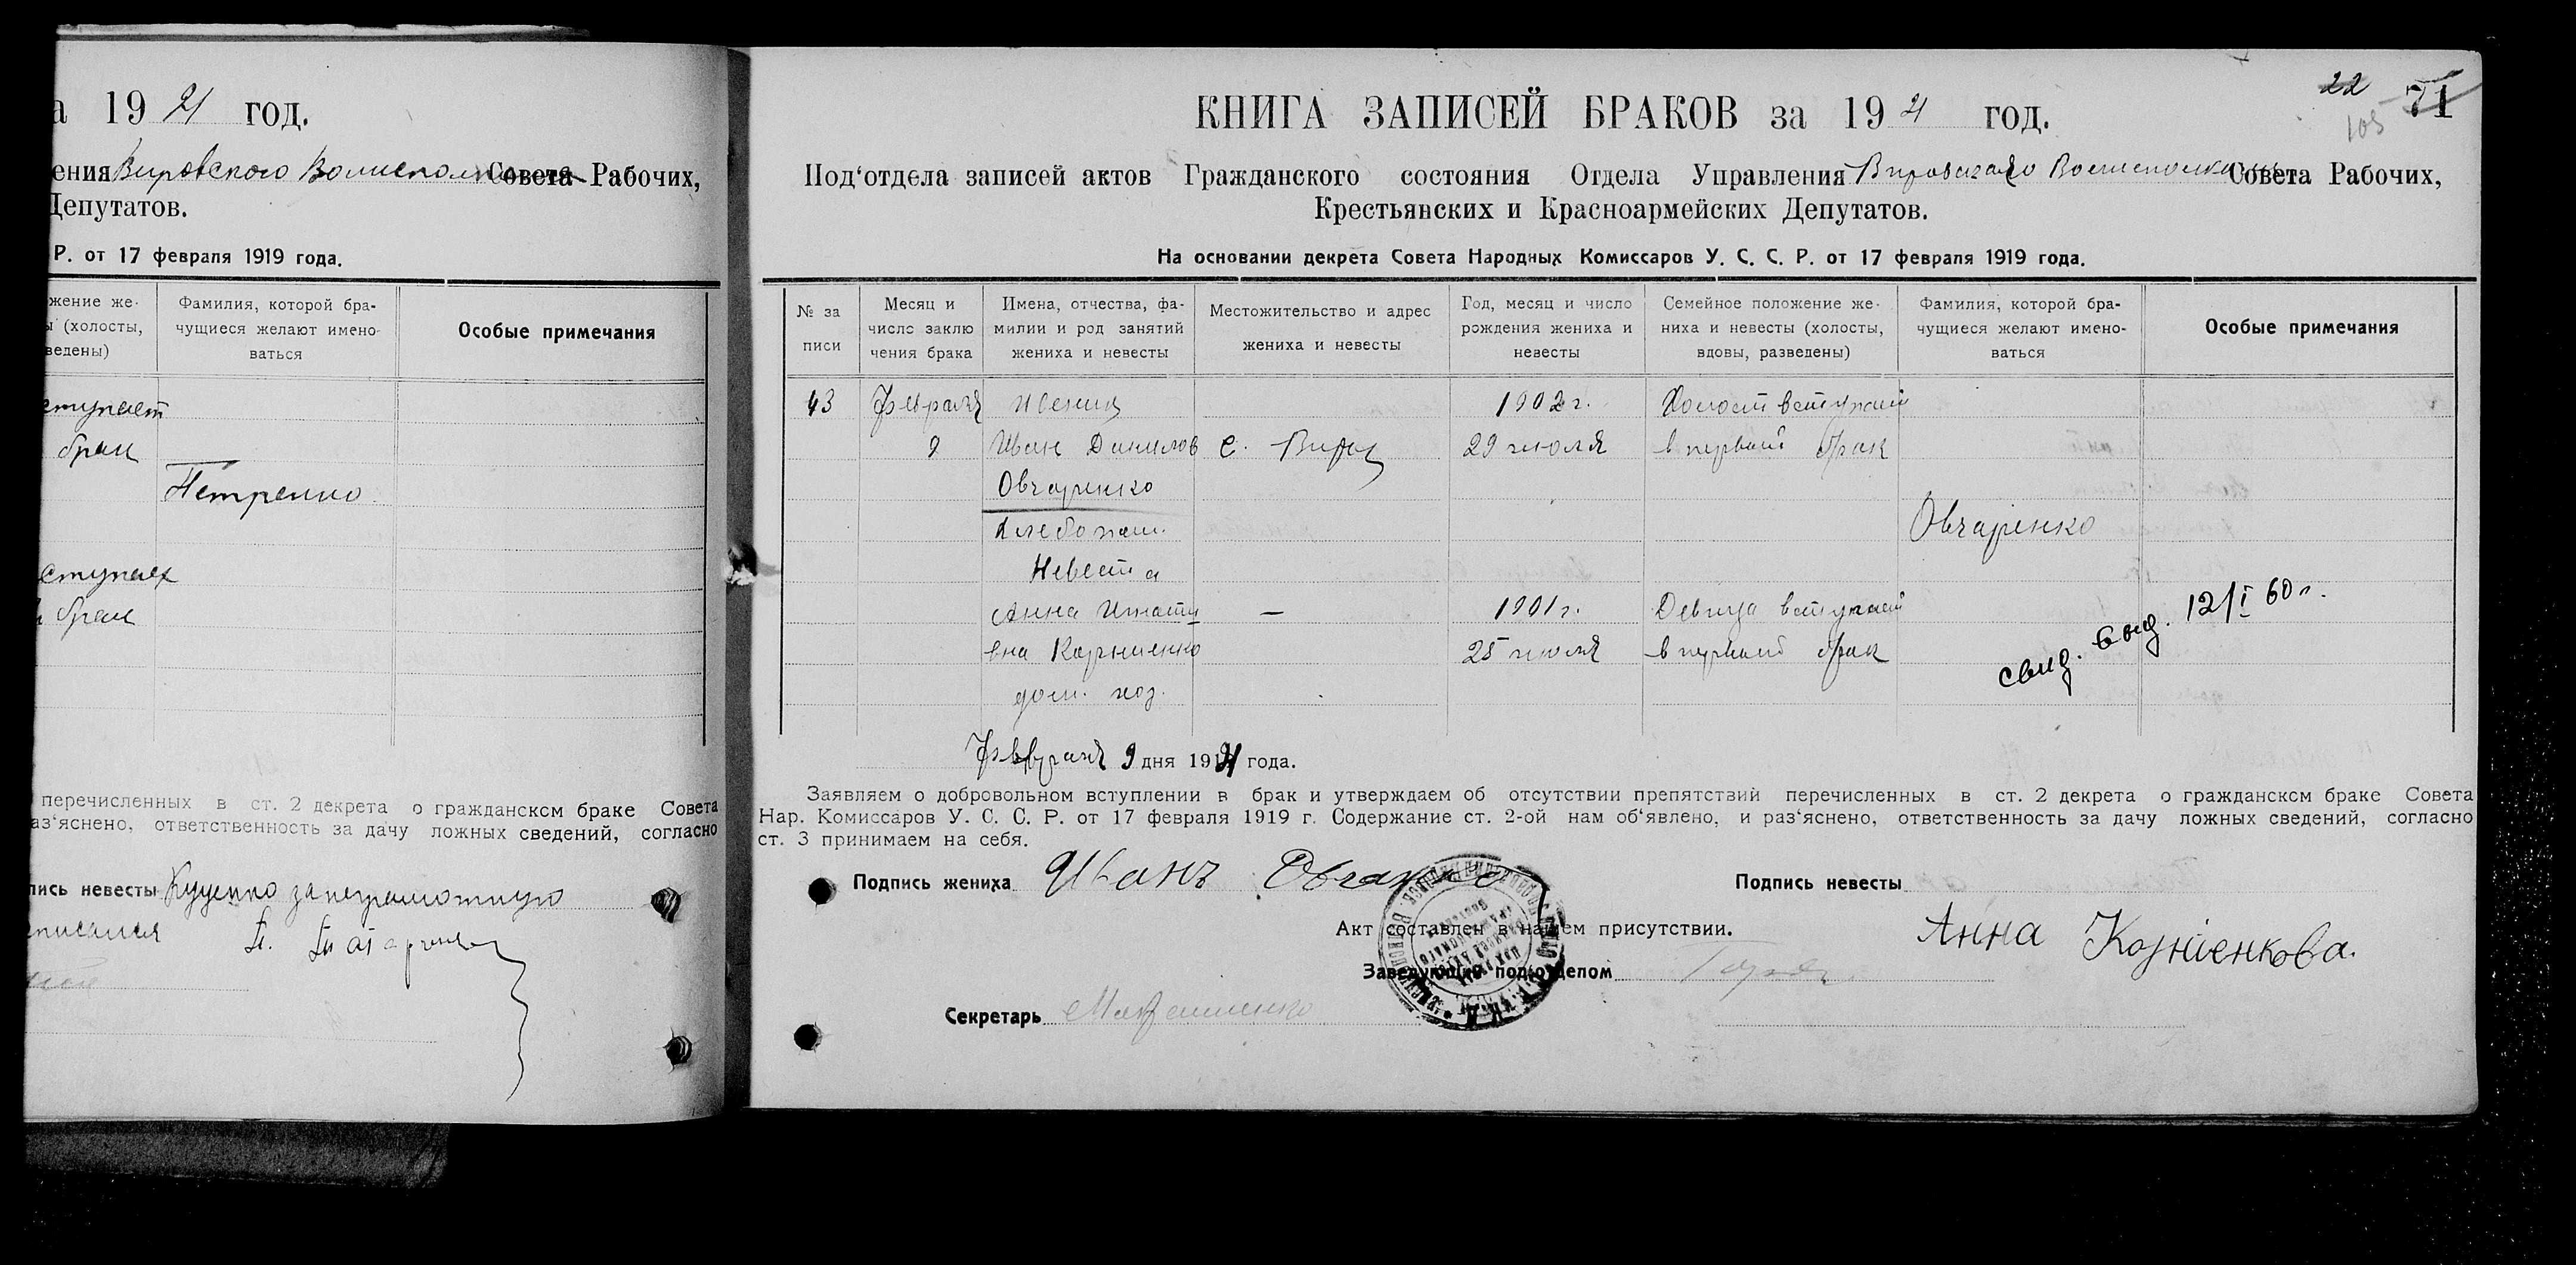 а 1921 год.
ения Вировского Волисполкома Совета Рабочих,
Депутатов.
Р. от 17 февраля 1919 года.
жение же-
ы (холосты,
ведены)
Фамилия, которой бра-
чущиеся желают имено-
ваться
Особые примечания
ступает
брак
Петренко
ступает
брак
перечисленных в ст. 2 декрета о гражданском браке Совета
аз‘яснено, ответственность за дачу ложных сведений, согласно
пись невесты Куценко за неграмотную
списался
КНИГА ЗАПИСЕЙ БРАКОВ за 1921 год.
22 71
105
Под‘отдела записей актов Гражданского состояния Отдела Управления Вировского Волисполкома Совета Рабочих,
Крестьянских и Красноармейских Депутатов.
На основании декрета Совета Народных Комиссаров У. С. С. Р. от 17 февраля 1919 года.
№ за
писи
Месяц и
число заклю
чения брака
Имена, отчества, фа-
милии и род занятий
жениха и невесты
Местожительство и адрес
жениха и невесты
Год, месяц и число
рождения жениха и
невесты
Семейное положение же-
ниха и невесты (холосты,
вдовы, разведены)
Фамилия, которой бра-
чущиеся желают имено-
ваться
Особые примечания
43 Февраля жених 1902 г. Холост вступает
9 Иван Данилов с. Виры 29 июля в первый брак
Овчаренко
Хлебопаш. Овчаренко
Невеста
Анна Игнати — 1901 г. Девица вступает
вна Корниенко 25 июля в первый брак
дом. хоз.
свид. выд. 12/I 60 г.
Февраля 9 дня 1921 года.
Заявляем о добровольном вступлении в брак и утверждаем об отсутствии препятствий перечисленных в ст. 2 декрета о гражданском браке Совета
Нар. Комиссаров У. С. С. Р. от 17 февраля 1919 г. Содержание ст. 2-ой нам об‘явлено, и раз‘яснено, ответственность за дачу ложных сведений, согласно
ст. 3 принимаем на себя.
Подпись жениха Иванъ
Подпись невесты
Анна Корніенкова.
Акт составлен в нашем присутствии.
Заведующий под‘отделом
Секретарь